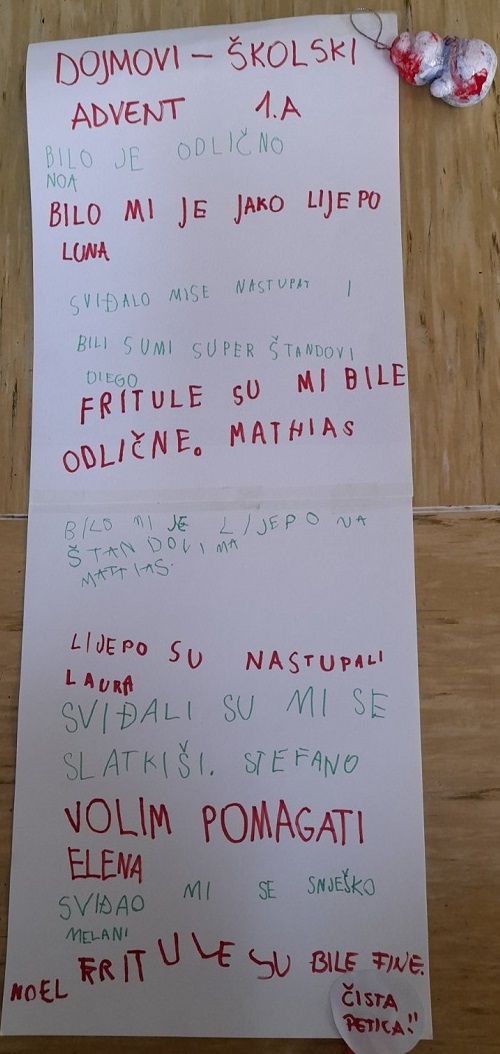 DOJMOVI – ŠKOLSKI
ADVENT 1.A
BILO JE ODLIČNO
NOA
BILO MI JE JAKO LIJEPO
LUNA
SVIĐALO MISE NASTUPAT I
BILI SUMI SUPER ŠTANDOVI
DIEGO
FRITULE SU MI BILE
ODLIČNE. MATHIAS
BILO MI JE LIJEPO NA
ŠTANDOVIMA
MATTIAS.
LIJEPO SU NASTUPALI
LAURA
SVIĐALI SU MI SE
SLATKIŠI. STEFANO
VOLIM POMAGATI
ELENA
SVIĐAO MI SE SNJEŠKO
MELANI
FRITULE SU BILE FINE.
NOEL
ČISTA
PETICA!!